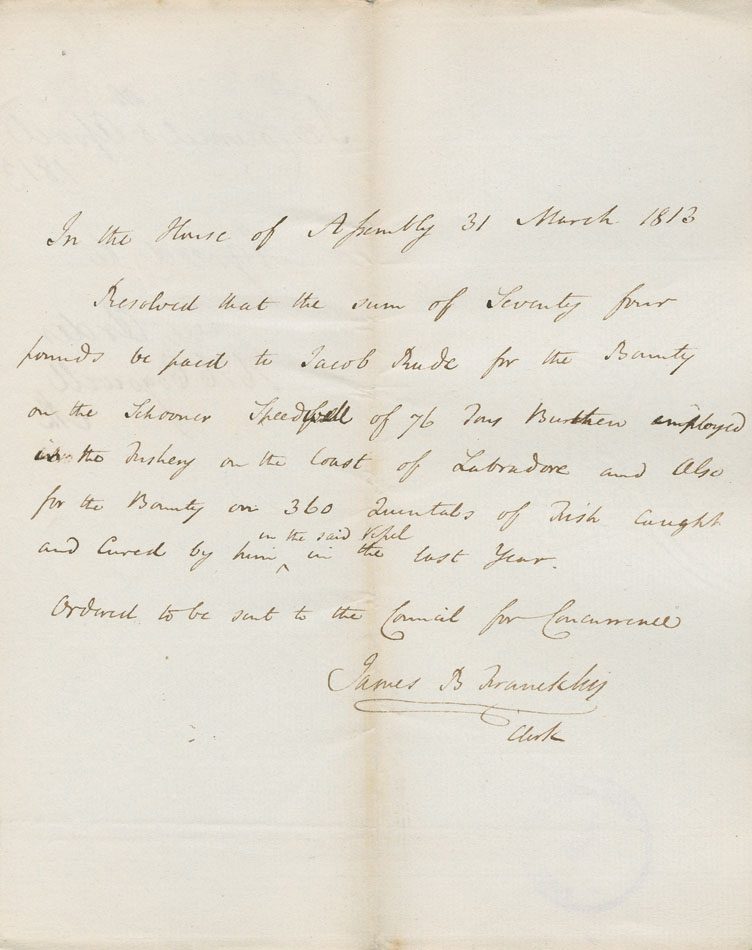 In the House of Assembly 31 March 1813
Resolved that the sum of Seventy four
pounds be paid to Jacob Rude for the Bounty
on the Schooner Speedwell of 76 Tons Burthen employed
in the Fishery on the Coast of Labradore and Also
for the Bounty on 360 Quintals of Fish caught
in the said Vessel
and Cured by him ‸ in the last Year.
Ordered to be sent to the Council for Concurrence
James B Franckklin
Clerk